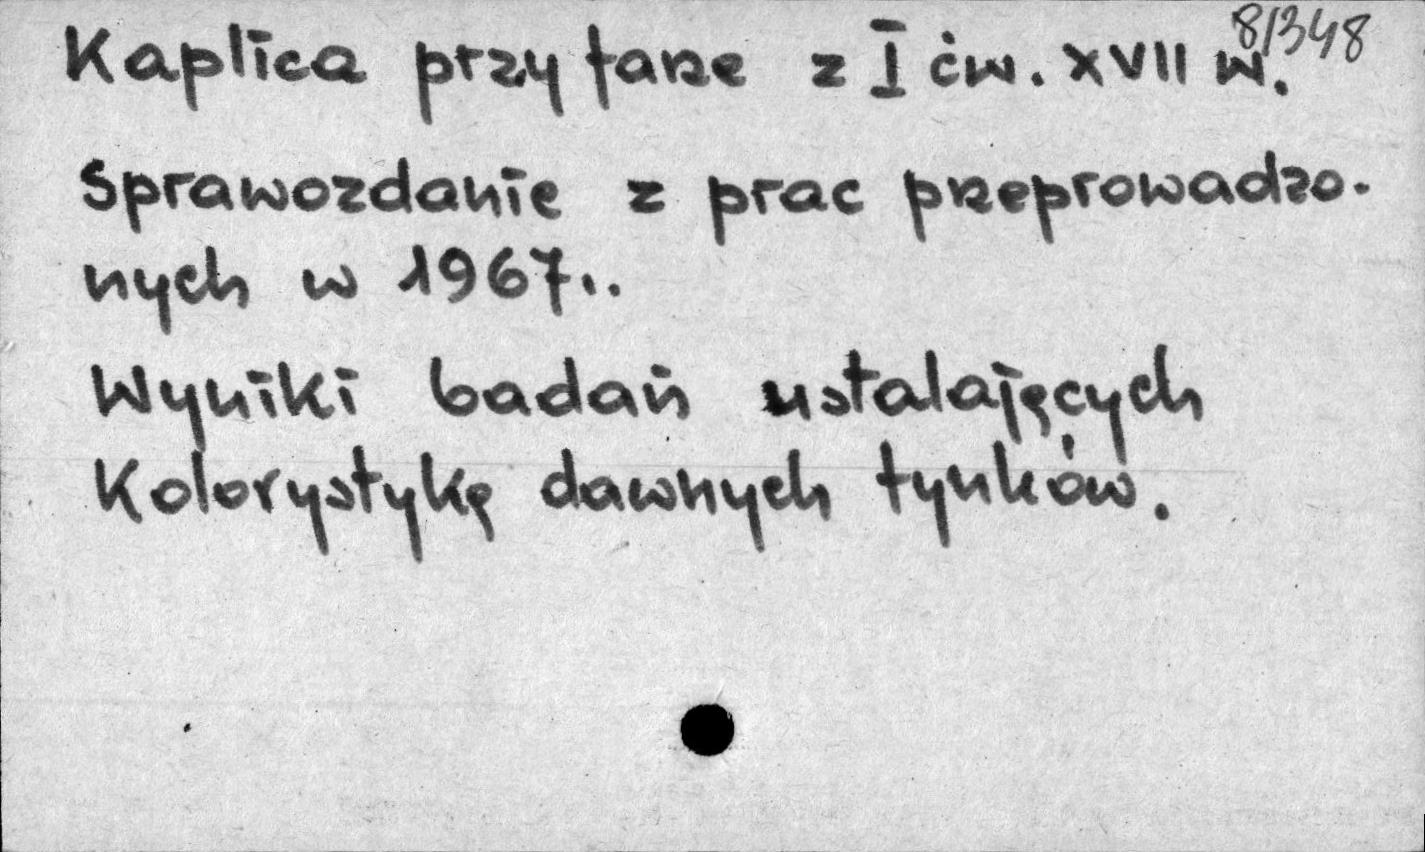 8/348
Kaplica przy farze z I ćw. XVII w.
Sprawozdanie z prac przeprowadzo-
nych w 1967r.
Wyniki badań ustalających
Kolorystykę dawnych tynków.